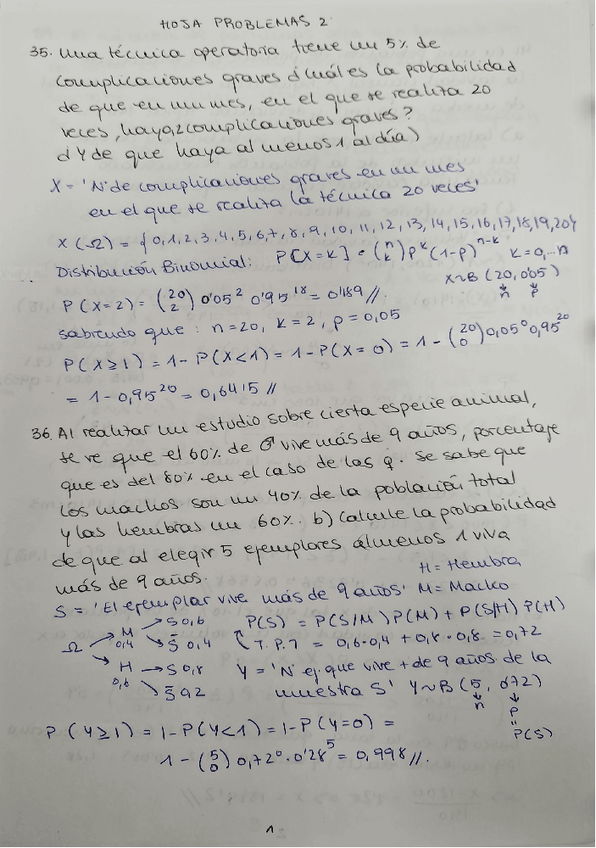 HOJA PROBLEMAS 2
35. Una técnica operatoria tiene un 5% de
complicaciones graves ¿Cuál es la probabilidad
de que en un mes, en el que se realiza 20
veces, haya 2 complicaciones graves?
¿Y de que haya al menos 1 al día)
X = 'Nº de complicaciones graves en un mes
en el que se realiza la técnica 20 veces'
X(Ω) = {0,1,2,3,4,5,6,7,8,9,10,11,12,13,14,15,16,17,18,19,20}
Distribución Binomial: P[X=K] = (n k) p^k (1-p)^n-k K=0,...n
X~B(20, 0'05)
n p
P(X=2) = (20 2) 0'05² 0'95^18 = 0'189 //
sabiendo que: n=20, k=2, p=0,05
P(X≥1) = 1 - P(X<1) = 1 - P(X=0) = 1 - (20 0) 0,05^0 0,95^20
= 1 - 0,95^20 = 0,6415 //
36. Al realizar un estudio sobre cierta especie animal,
se ve que el 60% de ♂ vive más de 9 años, porcentaje
que es del 80% en el caso de las ♀. Se sabe que
los machos son un 40% de la población total
y las hembras un 60%. b) Calcule la probabilidad
de que al elegir 5 ejemplares almenos 1 viva
más de 9 años.
H = Hembra
S = 'El ejemplar vive más de 9 años' M = Macho
Ω M 0,4 S 0,6 S̄ 0,4
H 0,6 S 0,8 S̄ 0,2
P(S) = P(S/M) P(M) + P(S/H) P(H)
T.P.T = 0,6·0,4 + 0,8·0,8 = 0,72
Y = 'Nº ej. que vive + de 9 años de la
muestra S' Y~B(5, 0'72)
n p
P(S)
P(Y≥1) = 1-P(Y<1) = 1-P(Y=0) =
1 - (5 0) 0,72^0 · 0'28^5 = 0,998 //.
1